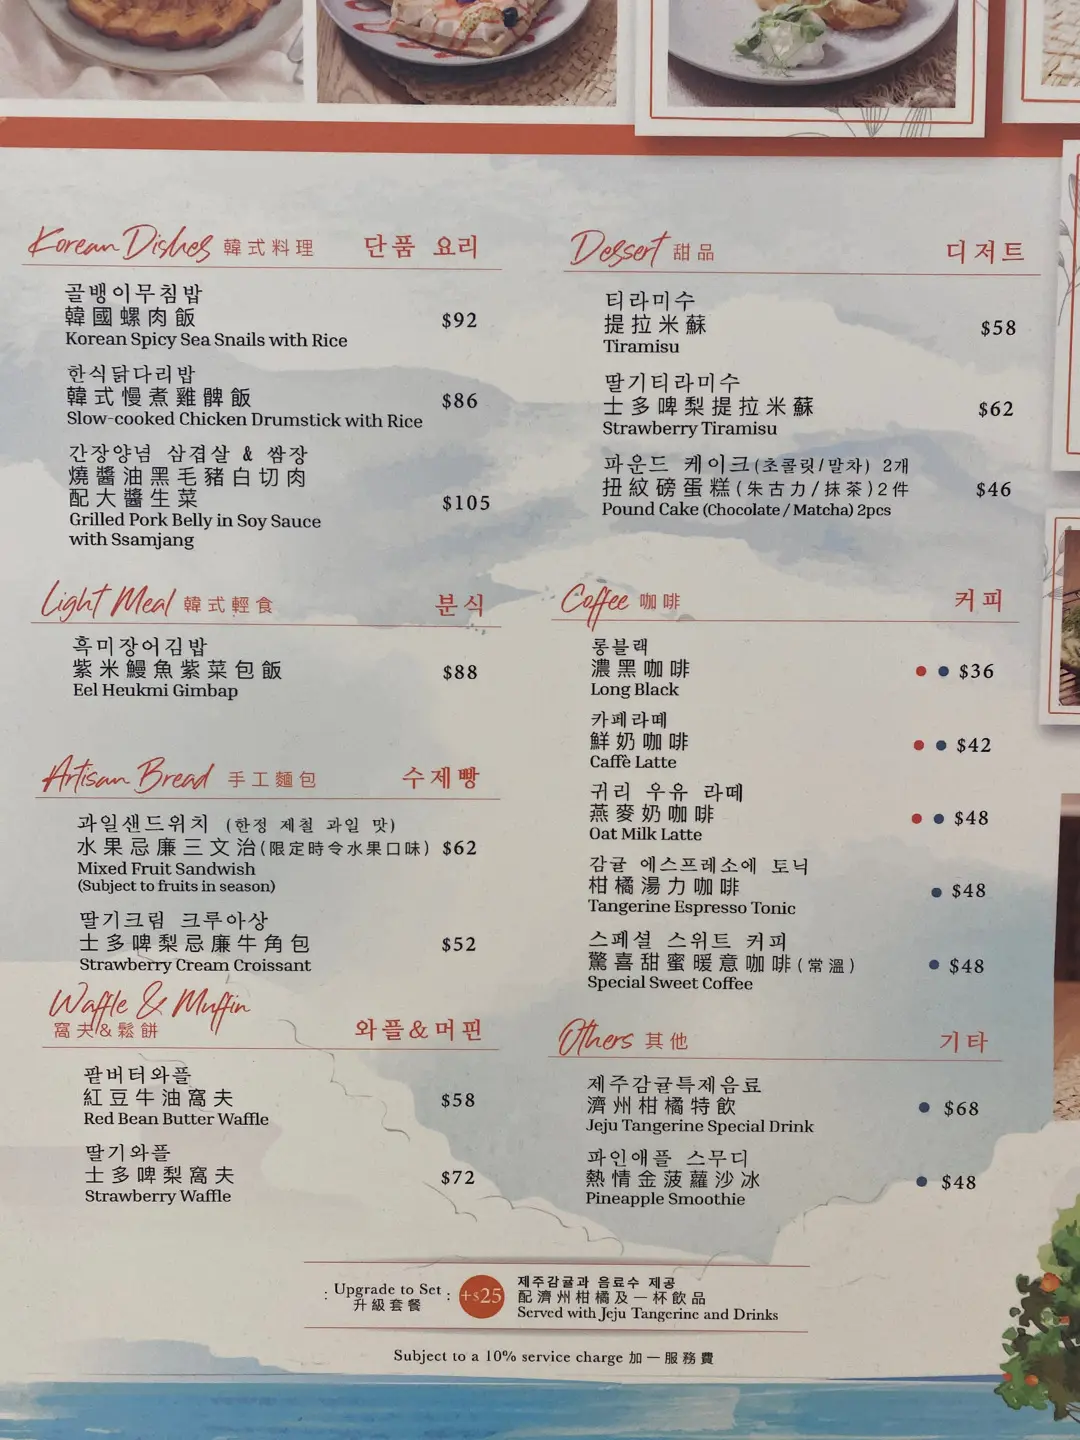 Korean Dishes 韓式料理 단품 요리
골뱅이무침밥
韓國螺肉飯 $92
Korean Spicy Sea Snails with Rice
한식닭다리밥
韓式慢煮雞髀飯 $86
Slow-cooked Chicken Drumstick with Rice
간장양념 삼겹살 & 쌈장
燒醬油黑毛豬白切肉
配大醬生菜 $105
Grilled Pork Belly in Soy Sauce
with Ssamjang
Light Meal 韓式輕食 분식
흑미장어김밥
紫米鰻魚紫菜包飯 $88
Eel Heukmi Gimbap
Artisan Bread 手工麵包 수제빵
과일샌드위치 (한정 제철 과일 맛)
水果忌廉三文治(限定時令水果口味) $62
Mixed Fruit Sandwish
(Subject to fruits in season)
딸기크림 크루아상
士多啤梨忌廉牛角包 $52
Strawberry Cream Croissant
Waffle & Muffin
窩夫&鬆餅 와플&머핀
팥버터와플
紅豆牛油窩夫 $58
Red Bean Butter Waffle
딸기와플
士多啤梨窩夫 $72
Strawberry Waffle
Dessert 甜品 디저트
티라미수
提拉米蘇 $58
Tiramisu
딸기티라미수
士多啤梨提拉米蘇 $62
Strawberry Tiramisu
파운드 케이크(초콜릿/말차) 2개
扭紋磅蛋糕(朱古力/抹茶)2件 $46
Pound Cake (Chocolate / Matcha) 2pcs
Coffee 咖啡 커피
롱블랙
濃黑咖啡 $36
Long Black
카페라떼
鮮奶咖啡 $42
Caffè Latte
귀리 우유 라떼
燕麥奶咖啡 $48
Oat Milk Latte
감귤 에스프레소에 토닉
柑橘湯力咖啡 $48
Tangerine Espresso Tonic
스페셜 스위트 커피
驚喜甜蜜暖意咖啡(常溫) $48
Special Sweet Coffee
Others 其他 기타
제주감귤특제음료
濟州柑橘特飲 $68
Jeju Tangerine Special Drink
파인애플 스무디
熱情金菠蘿沙冰 $48
Pineapple Smoothie
: Upgrade to Set : +$25
升級套餐
제주감귤과 음료수 제공
配濟州柑橘及一杯飲品
Served with Jeju Tangerine and Drinks
Subject to a 10% service charge 加一服務費